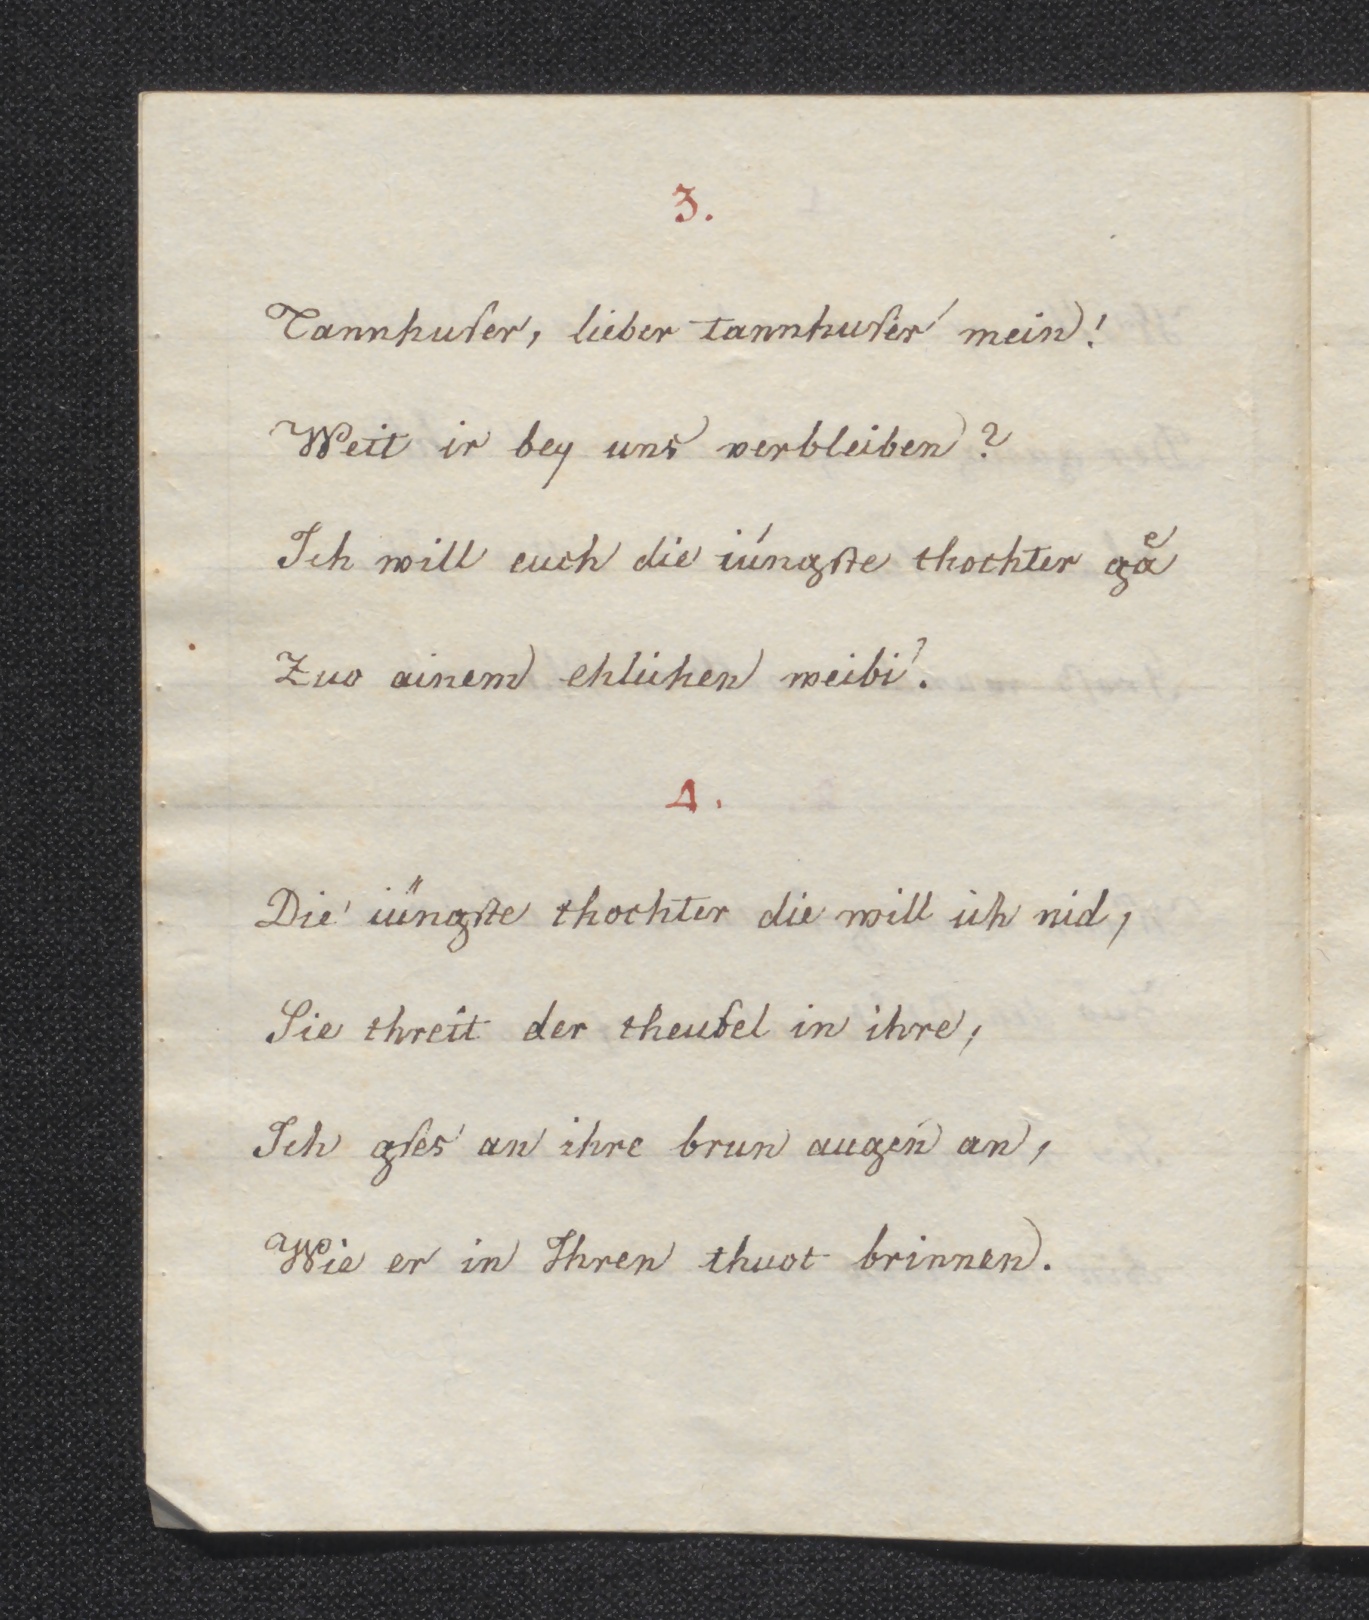 3.
Tannhuſer, lieber tannhuſer mein!
Weit ir bey uns verbleiben?
Ich will euch die iúngſte thochter gaͤ
Zuo ainem ehlichen weibi.
4.
Die iüngſte thochter die will ich nid,
Sie threit der theufel in ihre,
Ich gſes an ihre brun augen an,
Wie er in Ihren thuot brinnen.